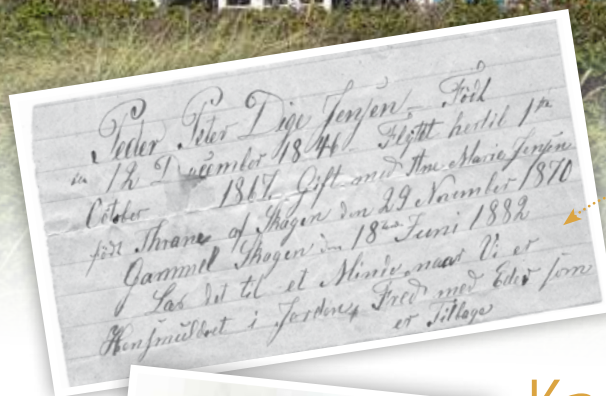 Peder Peter Dige Jensen – Född
den 12 December 1846 Flÿttt hertil 1ste
October 1867. Gift med Ane Marie Jensen
född Thrane af Skagen den 29 November 1870
Gammel Skagen den 18de Juni 1882
Las det til et Minde naar Vi er
Hensmuldret i Jorden, Fred med Eder som
er Tilbage